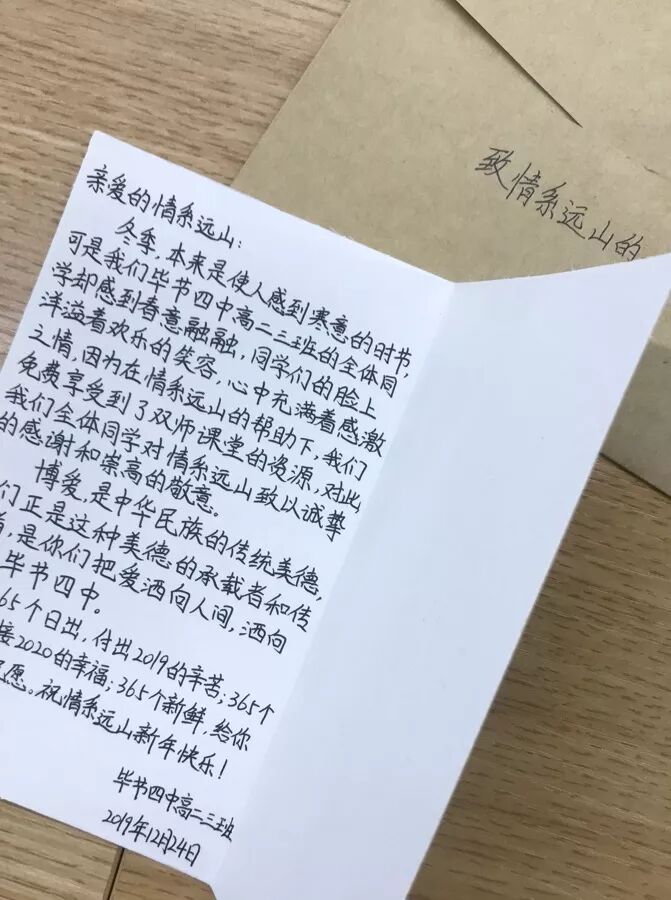 致情系远山的
亲爱的情系远山:
冬季,本来是使人感到寒意的时节,
可是我们毕节四中高二三班的全体同
学却感到春意融融,同学们的脸上
洋溢着欢乐的笑容,心中充满着感激
之情,因为在情系远山的帮助下,我们
免费享受到了双师课堂的资源,对此
我们全体同学对情系远山致以诚挚
的感谢和崇高的敬意。
博爱,是中华民族的传统美德,
们正是这种美德的承载者和传
,是你们把爱洒向人间,洒向
毕节四中。
65个日出,付出2019的辛苦;365个
接2020的幸福;365个新鲜,给你
愿。祝情系远山新年快乐!
毕节四中高二三班
2019年12月24日